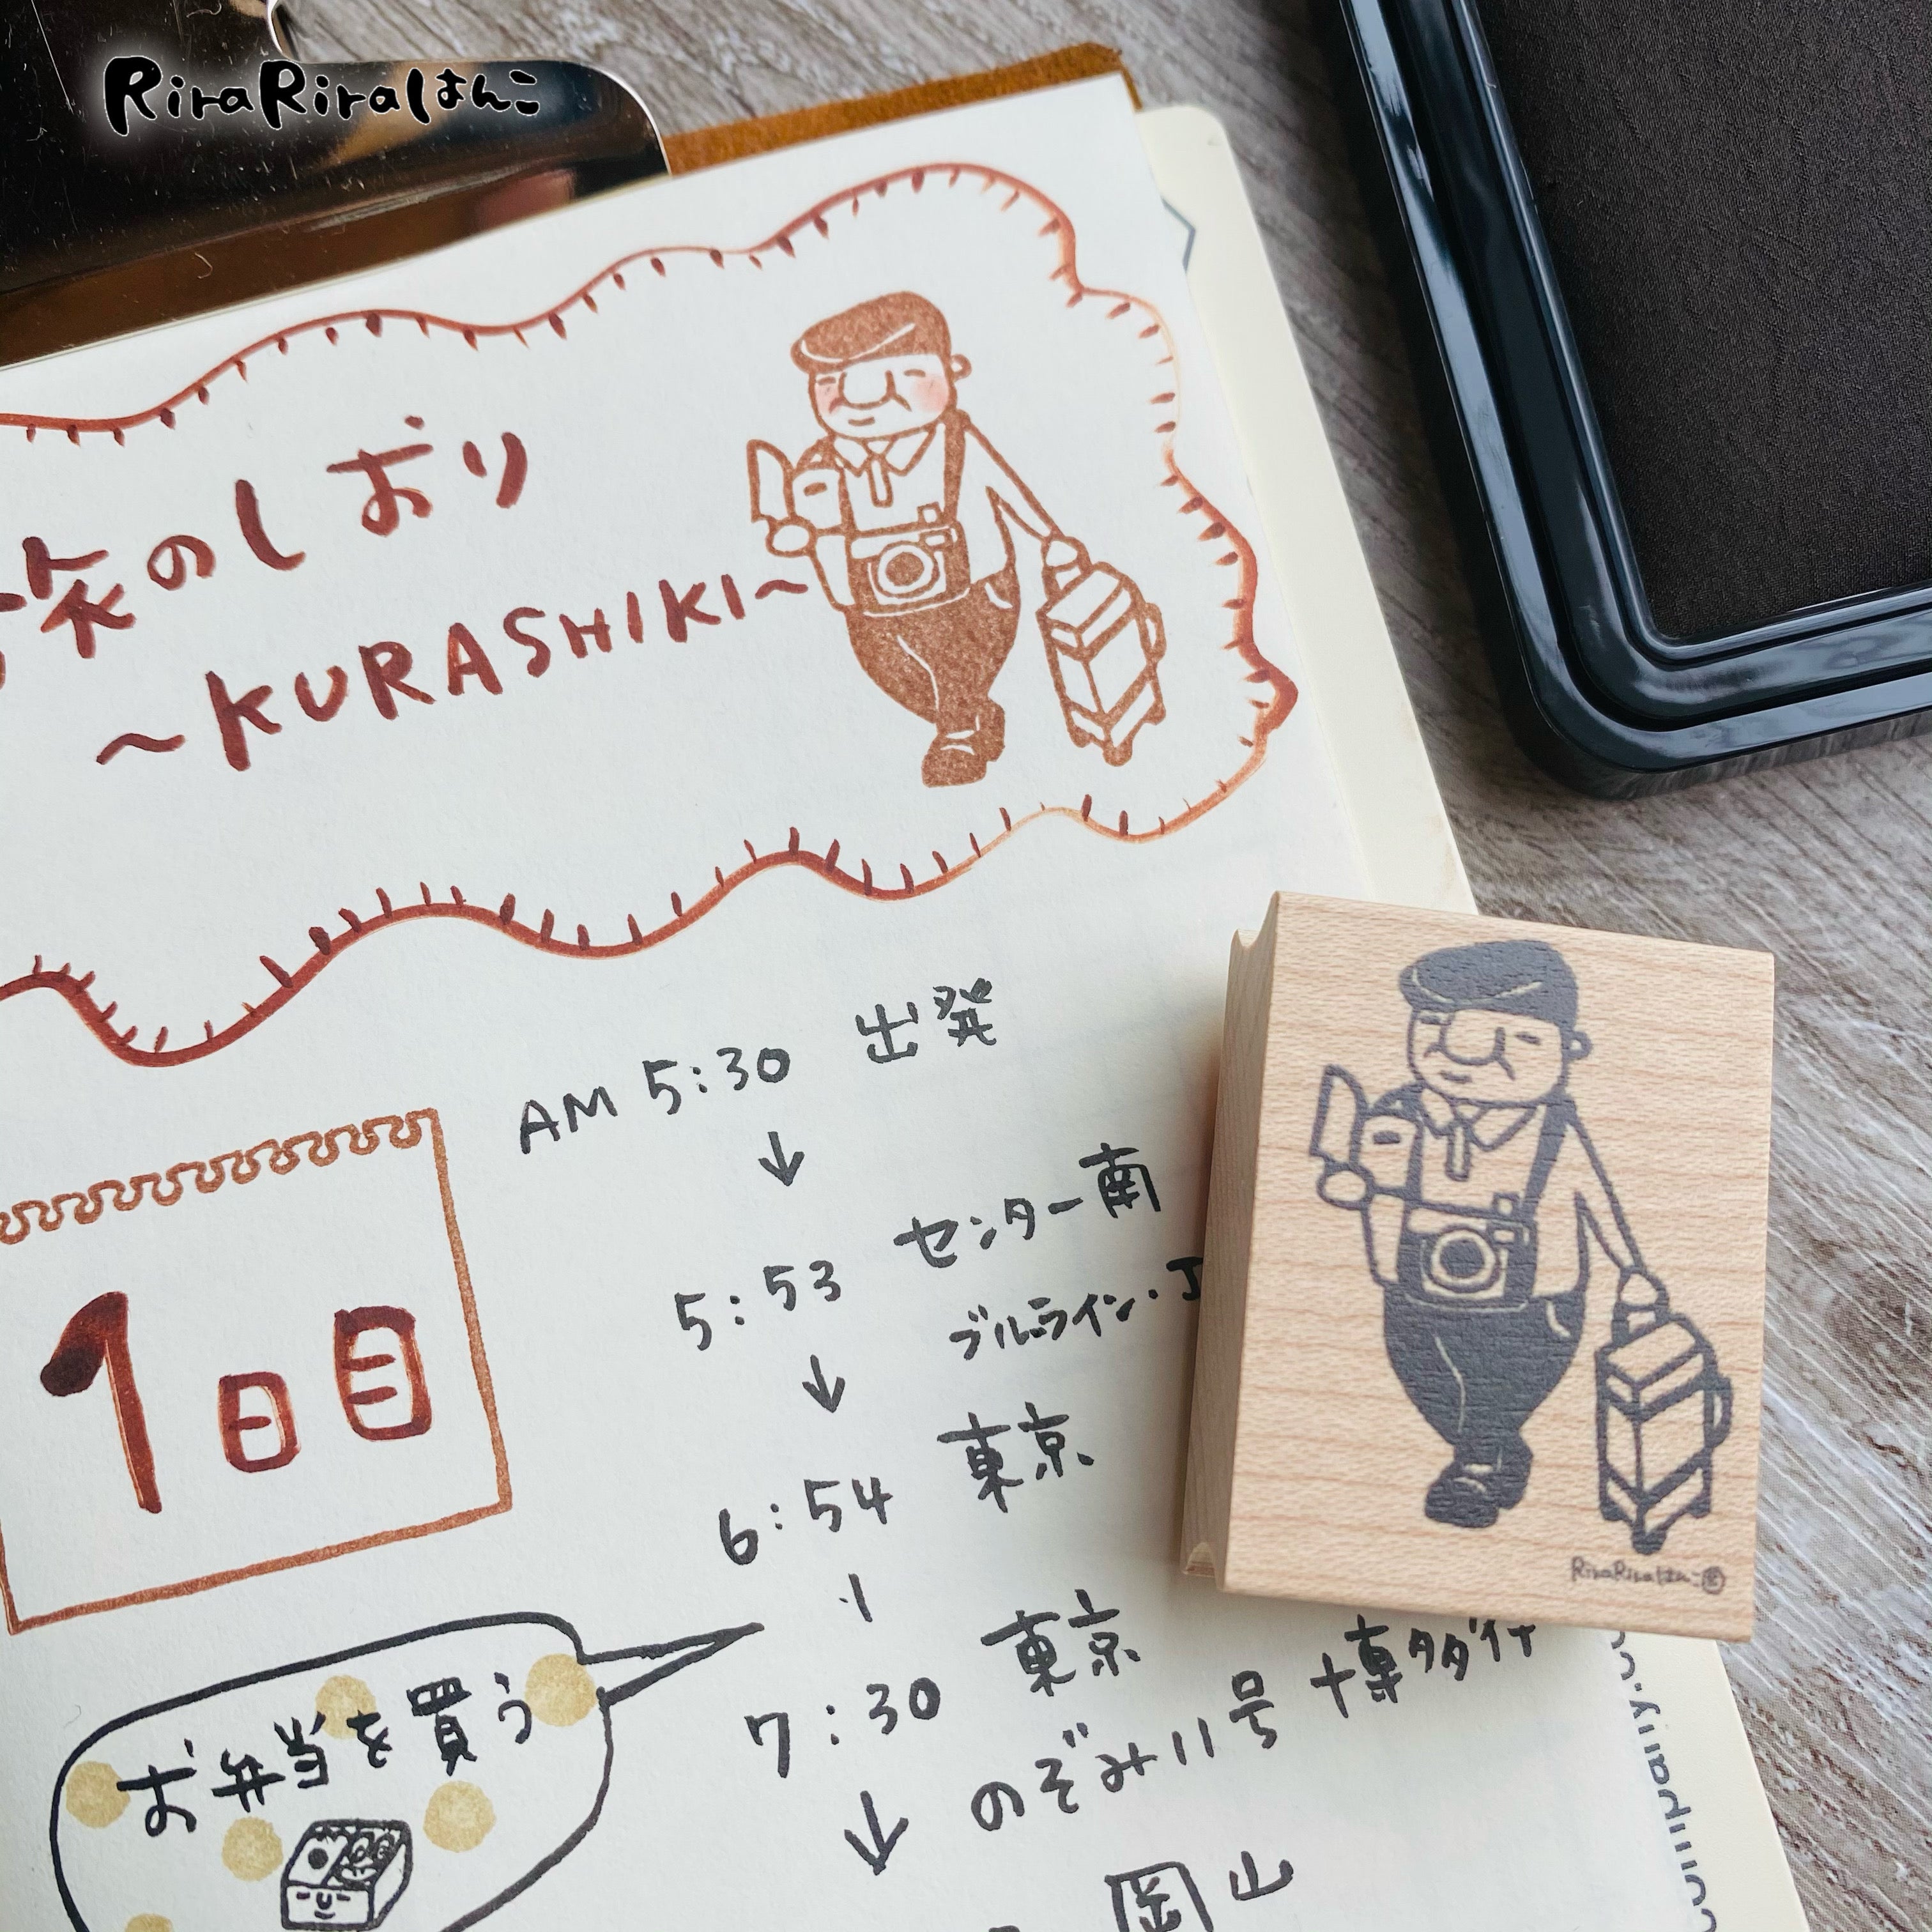 RiraRiraはんこ
旅のしおり
~KURASHIKI~
AM 5:30 出発
↓
5:53 センター南
ブルーライン・J
↓
6:54 東京
7:30 東京
↓ のぞみ11号 博多行
岡山
1日目
お弁当を買う
RiraRiraはんこ